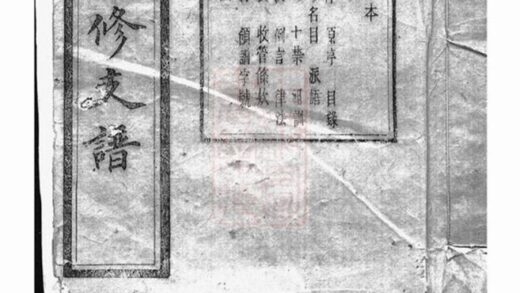 本
序 目錄
名目 派語
十禁 祠訓
例言 律法
收管條欵
領譜字號
修支譜